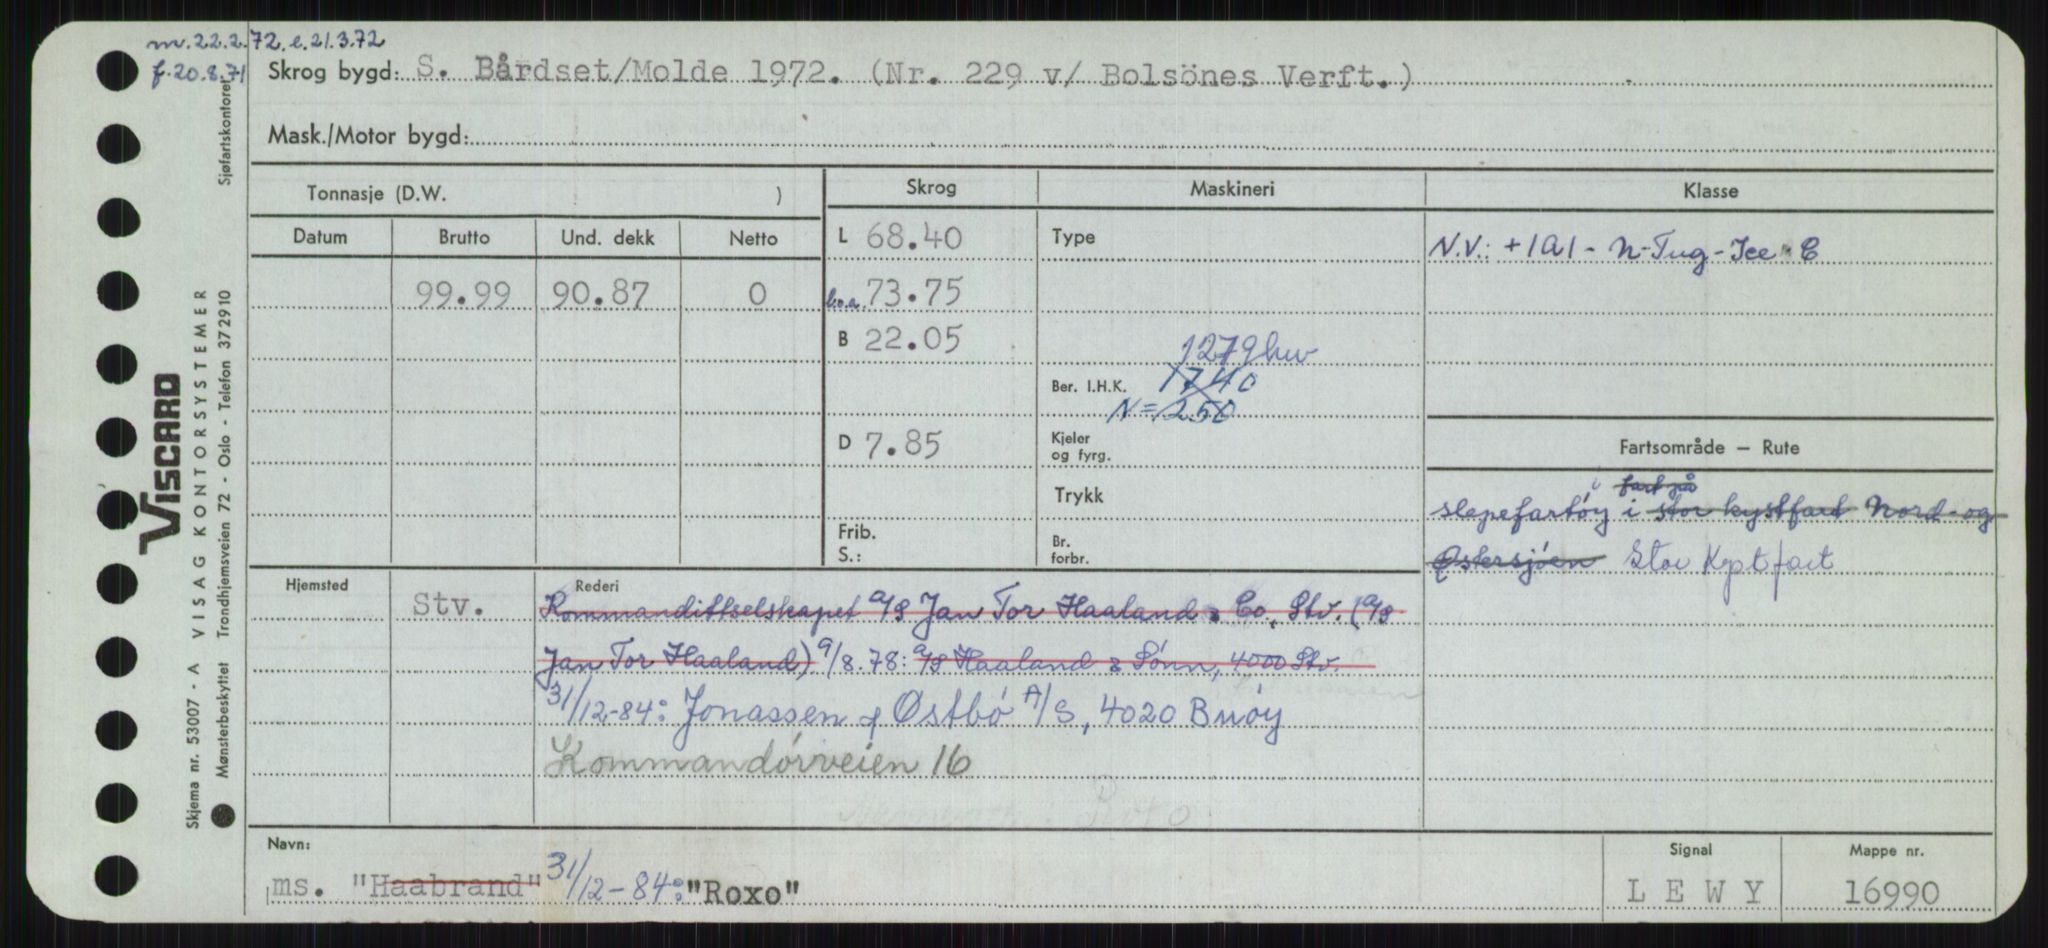 m. 22.2.72. e. 21.3.72
f. 20.8.71
Skrog bygd: S. Bårdset/Molde 1972. (Nr. 229 v/ Bolsönes Verft.)
Mask./Motor bygd:
Tonnasje (D.W. )
Skrog
Maskineri
Klasse
Datum
Brutto
Und. dekk
Netto
L 68.40
Type
N.V.: +1A1 - N-Tug-Ice C
99.99
90.87
0
l.o.a. 73.75
B 22.05
1279 kw
Ber. I.H.K. 1740
N = 250
D 7.85
Kjeler
og fyrg.
Fartsområde – Rute
Trykk
fart på
slepefartöy i stor kystfart Nord- og
Frib.
S.:
Br.
forbr.
Østersjöen Stor Kystfart
Hjemsted
Stv.
Rederi
Kommandittselskapet A/S Jan Tor Haaland & Co, Stv. (A/S
Jan Tor Haaland) 9/8.78: A/S Haaland & Sönn, 4000 Stv.
31/12-84: Jonassen & Østbö A/S, 4020 Buöy
Kommandörveien 16
Navn:
ms. "Haabrand" 31/12-84: "Roxo"
Signal
L E W Y
Mappe nr.
16990
VISCARD
Skjema nr. 53007 - A VISAG KONTORSYSTEMER
Mønsterbeskyttet Trondhjemsveien 72 - Oslo - Telefon 372910
Sjøfartskontoret